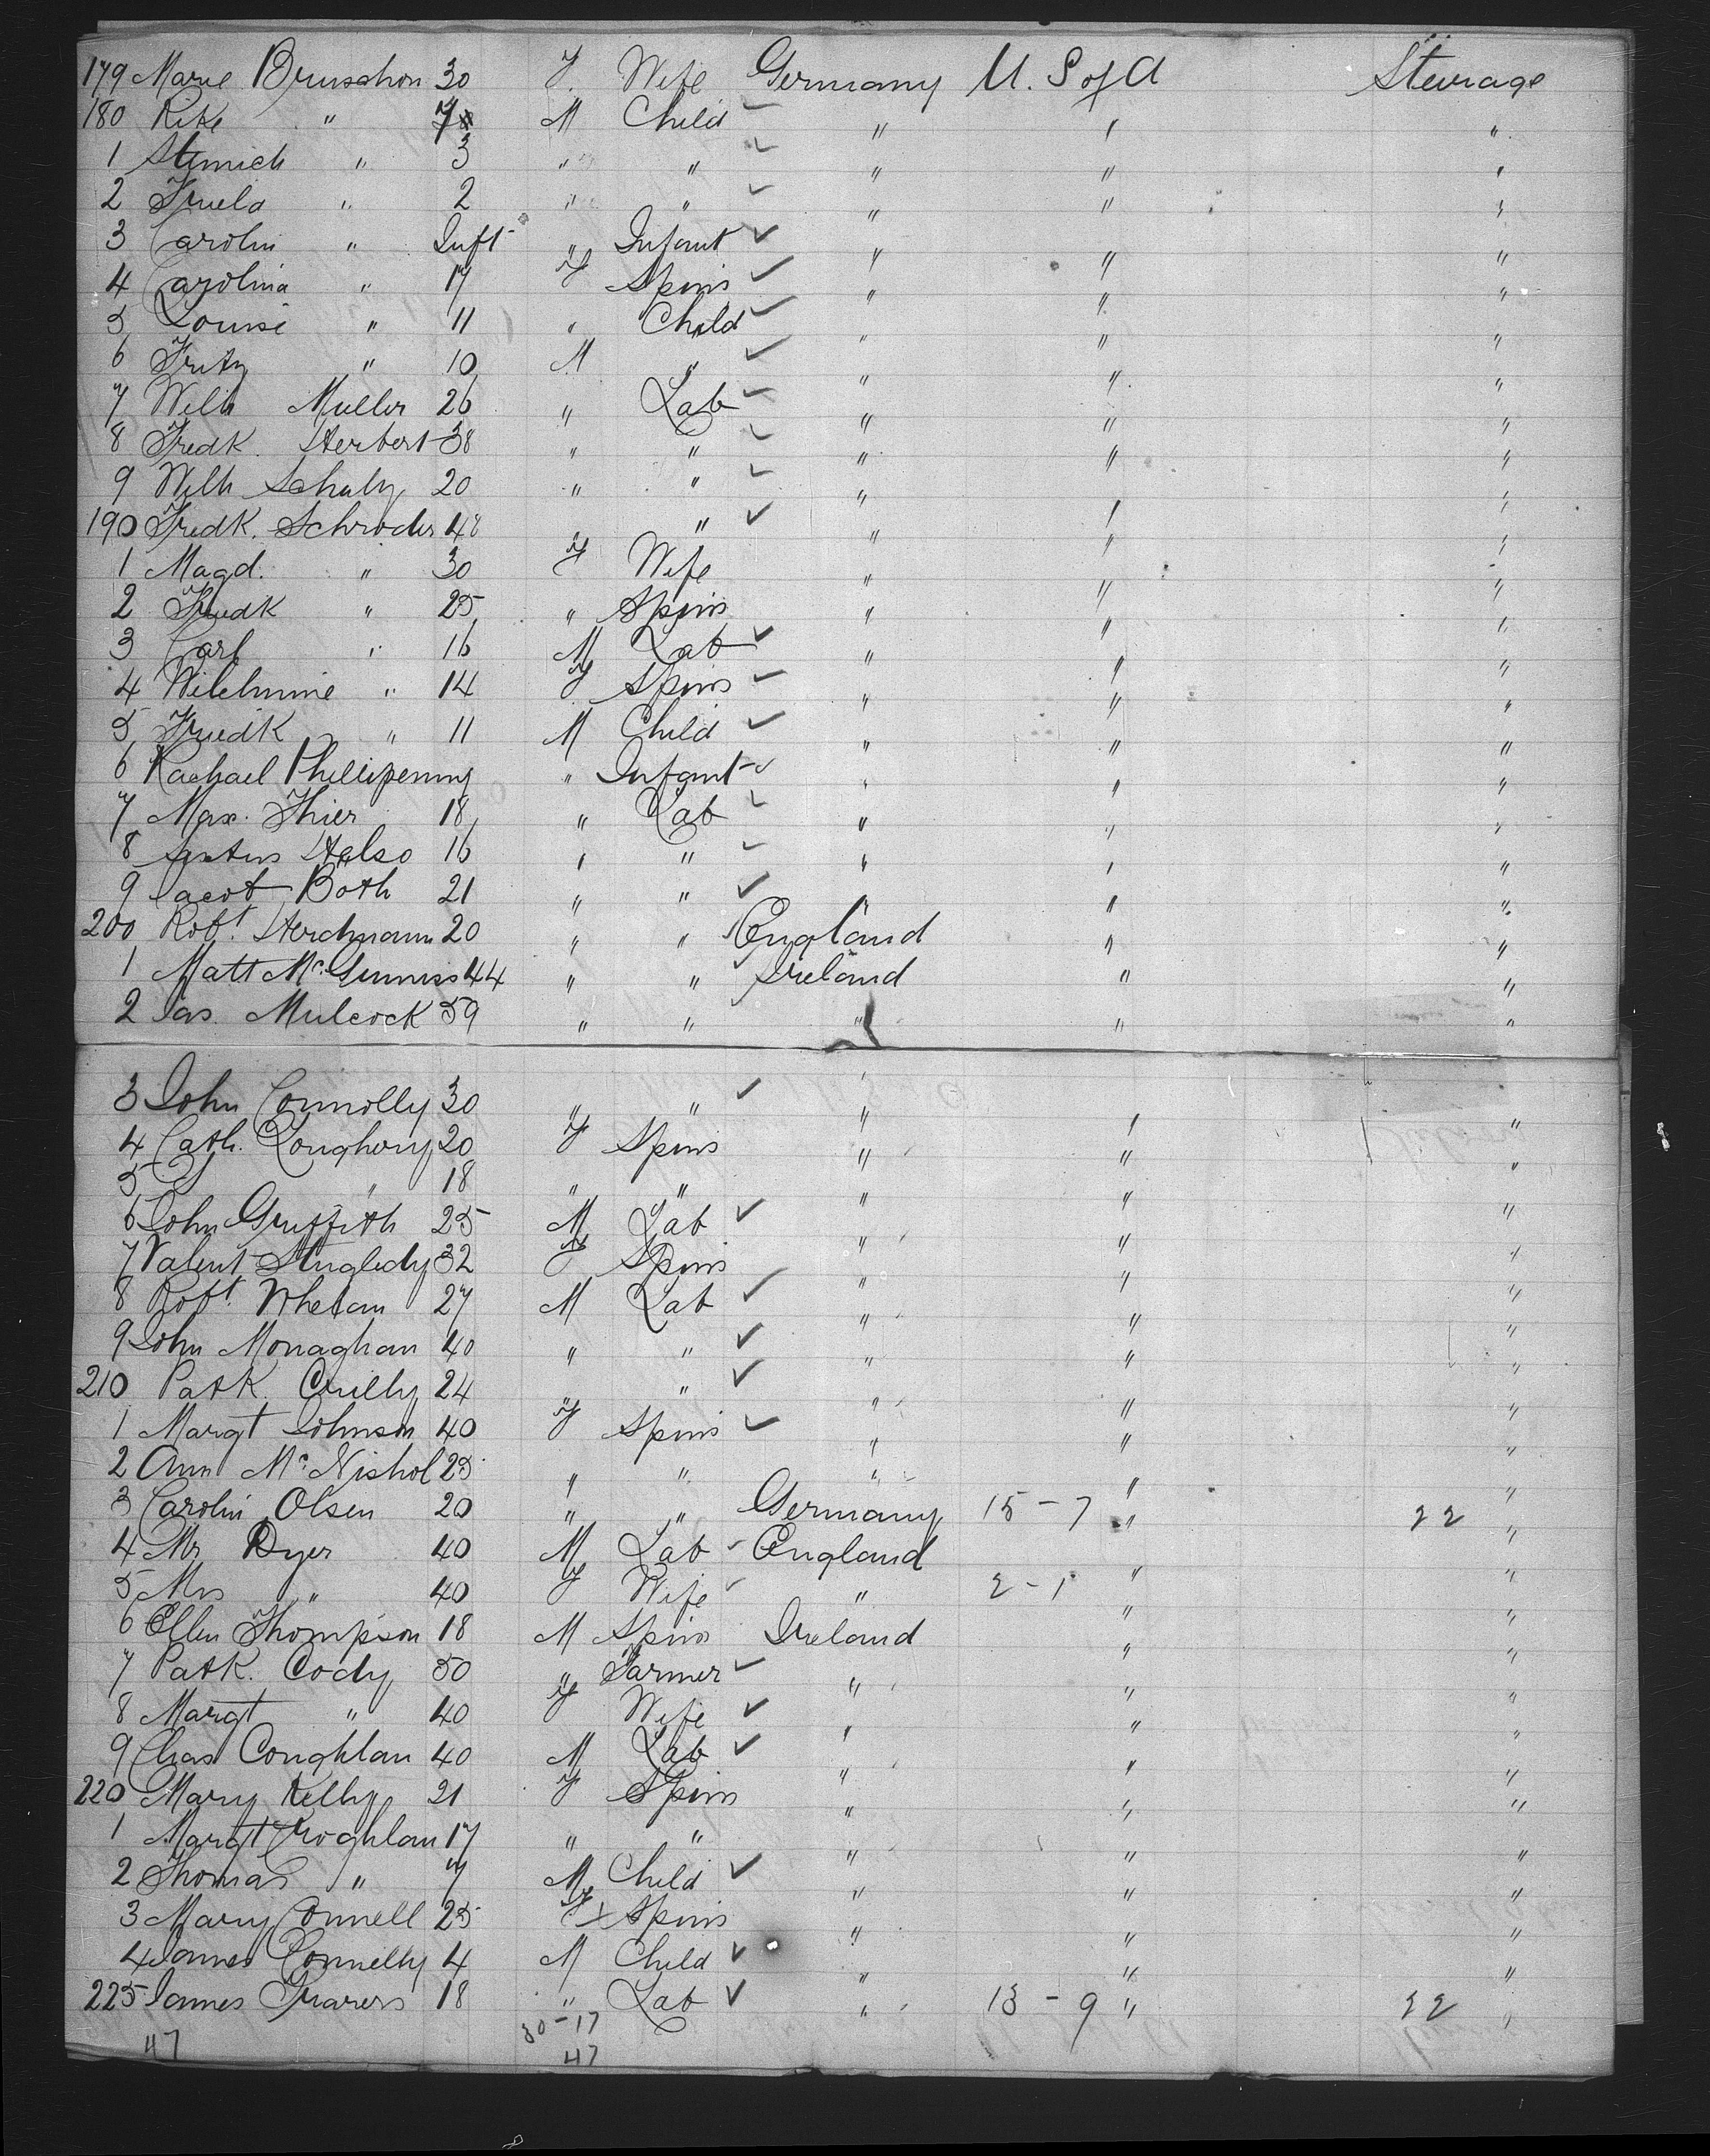 179 Marie Bruschon 30 F. Wife Germany U. S of A Steurage
180 Rike " 7 M Child " " "
1 " 3 " " " " "
2 Frieda " 2 " " " " "
3 Carolin " Inft " Infant " " "
4 Carolina " 17 F Spins " " "
5 Louise " 11 " Child " " "
6 Fritz " 10 M " " " "
7 Wilh Muller 26 " Lab " " "
8 Fredk. Herbert 38 " " " " "
9 Wilh Schulz 20 " " " " "
190 Fredk. Schroder 48 " " " "
1 Magd. " 30 F Wife " " "
2 Friedk " 25 " Spins " " "
3 Carl " 16 M Lab " " "
4 Wilelmine " 14 F Spins " " "
5 Friedk " 11 M Child " " "
6 Rachael " Infant " " "
7 Max. Thier 18 " Lab " " "
8 16 " " " " "
9 Jacob Böth 21 " " " " "
200 Robt. Herdmann 20 " " England " "
1 Matt McGinniss 44 " " Ireland " "
2 Jas. Mulcock 59 " " " " "
3 John Connolly 30 " " " " "
4 Cath. 20 F Spins " " "
5 " 18 " " " " "
6 John Griffith 25 M Lab " " "
7 Valent 32 F Spins " " "
8 Robt. Whelan 27 M Lab " " "
9 John Monaghan 40 " " " " "
210 Patk. Crilly 24 " " " " "
1 Margt Johnson 40 F Spins " " "
2 Ann McNishol 25 " " " " "
3 Carolin Olsen 20 " " Germany 15 - 7 " 22 "
4 Mr Dyer 40 M Lab England " "
5 Mrs " 40 F Wife " 2 - 1 " "
6 Ellen Thompson 18 M Spins Ireland " "
7 Patk. Cody 50 " Farmer " " "
8 Margt " 40 F Wife " " "
9 Chas Coughlan 40 M Lab " " "
220 Mary Kelly 21 F Spins " " "
1 Margt Croghlan 17 " " " " "
2 Thomas " 7 M Child " " "
3 Mary Connell 25 F x Spins " " "
4 James Connelly 4 M Child " " "
225 James 18 " Lab " 13 - 9 " 22 "
30 - 17
47 47